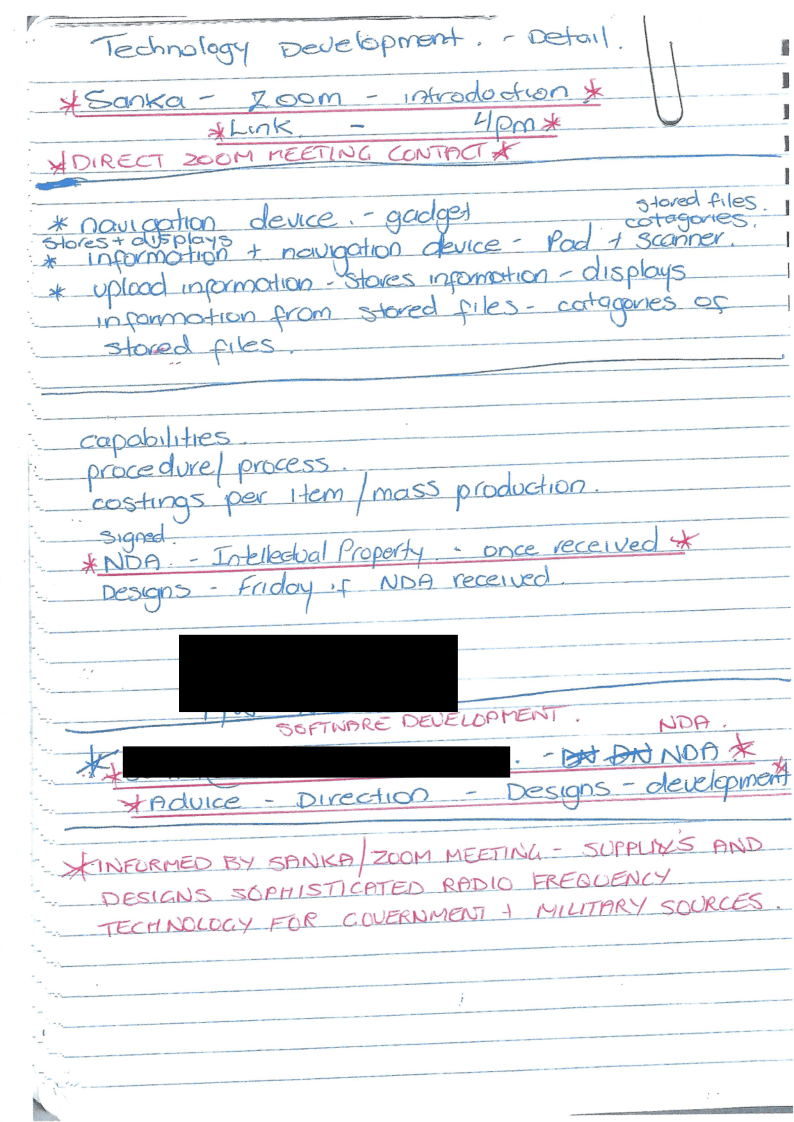 Technology Development. - Detail.
*Sanka - Zoom - introduction *
*Link. - 4pm*
*DIRECT ZOOM MEETING CONTACT*
stored files.
* navigation device. - gadget catagories.
stores + displays
* information + navigation device - Pad + scanner.
* upload information - stores information - displays
information from stored files - catagories of
stored files.
capabilities.
procedure/process.
costings per item/mass production.
signed.
*NDA. - Intellectual Property - once received *
Designs - Friday if NDA received.
SOFTWARE DEVELOPMENT. NDA.
* . - NDA *
*Advice - Direction - Designs - development*
*INFORMED BY SANKA/ZOOM MEETING - SUPPLIY'S AND
DESIGNS SOPHISTICATED RADIO FREQUENCY
TECHNOLOGY FOR GOVERNMENT + MILITARY SOURCES.